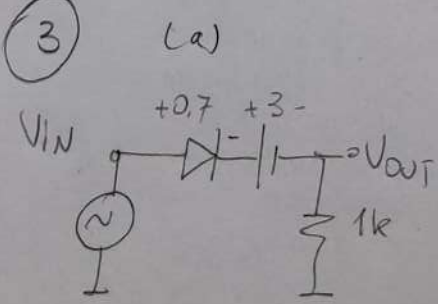 3 (a)
+0,7 - +3 -
VIN
VOUT
1k